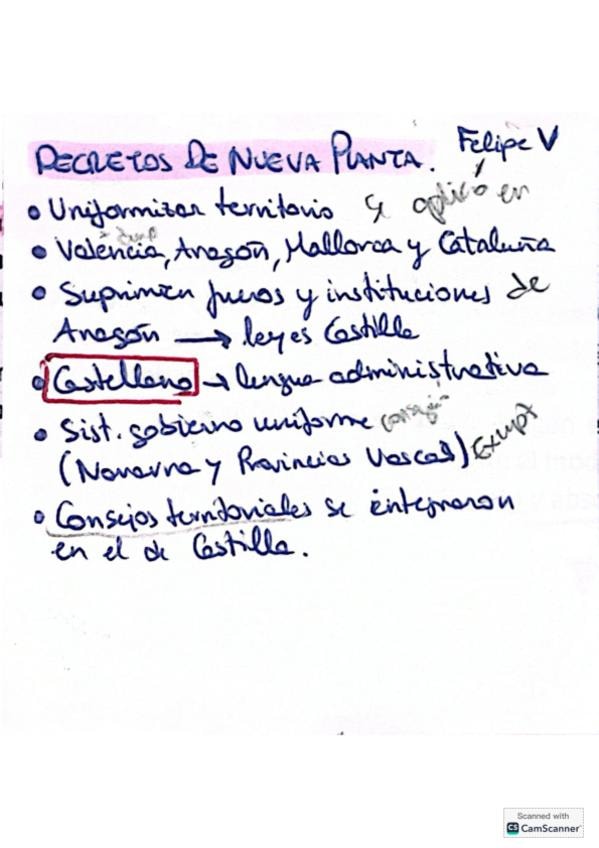 DECRETOS DE NUEVA PLANTA. Felipe V
• Uniformizar territorio Se aplicó en
• Valencia, Aragón, Mallorca y Cataluña
• Suprimen fueros y instituciones de
Aragón → leyes Castilla
• Castellano → lengua administrativa
• Sist. gobierno uniforme
(Navarra y Provincias Vascas) Exempt
• Consejos territoriales se integraron
en el de Castilla.
Scanned with
CS CamScanner